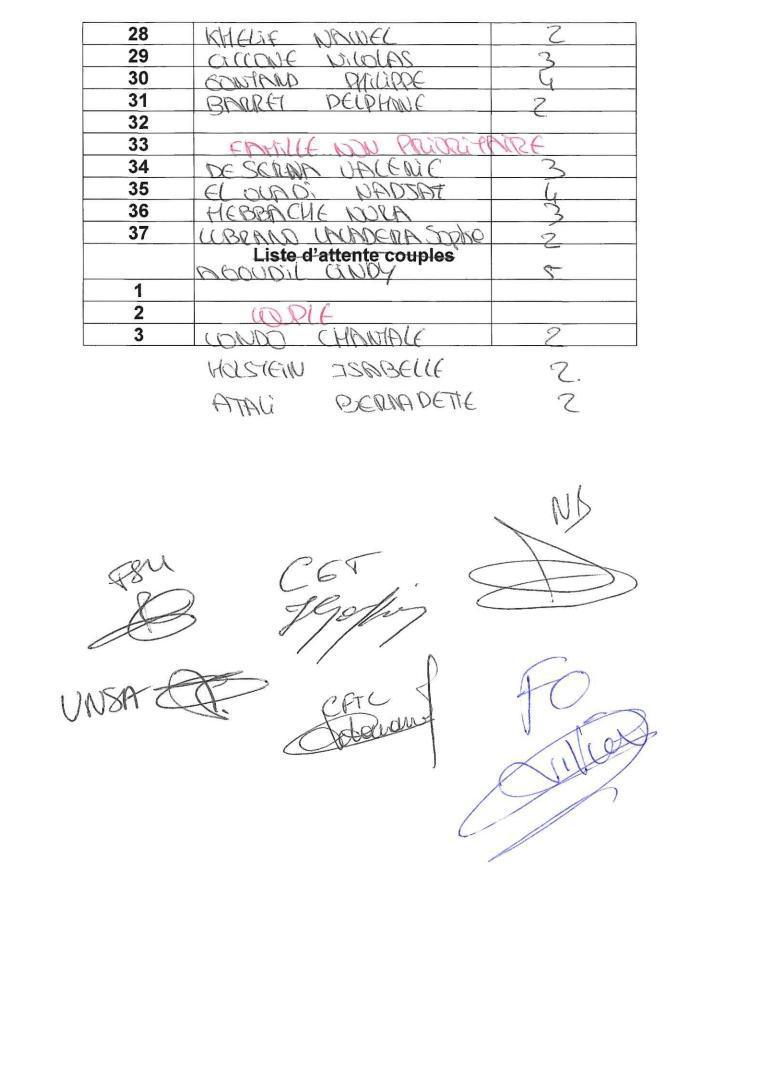 28 KHELIF NAWEL 2
29 CICCONE NICOLAS 3
30 GONTARD PHILIPPE 4
31 BARRET DELPHINE 2
32
33 FAMILLE NON PRIORITAIRE
34 DE SERNA VALERIE 3
35 EL OUADI NADJAT 4
36 HEBBACHE NORA 3
37 LUBRANO LAVADERA Sophie 2
Liste d'attente couples
ABOUDIL CINDY 5
1
2 COUPLE
3 CONDO CHANTALE 2
HOLSTEIN ISABELLE 2.
ATALI BERNADETTE 2
NB
FSU
CGT
UNSA
CFTC
FO